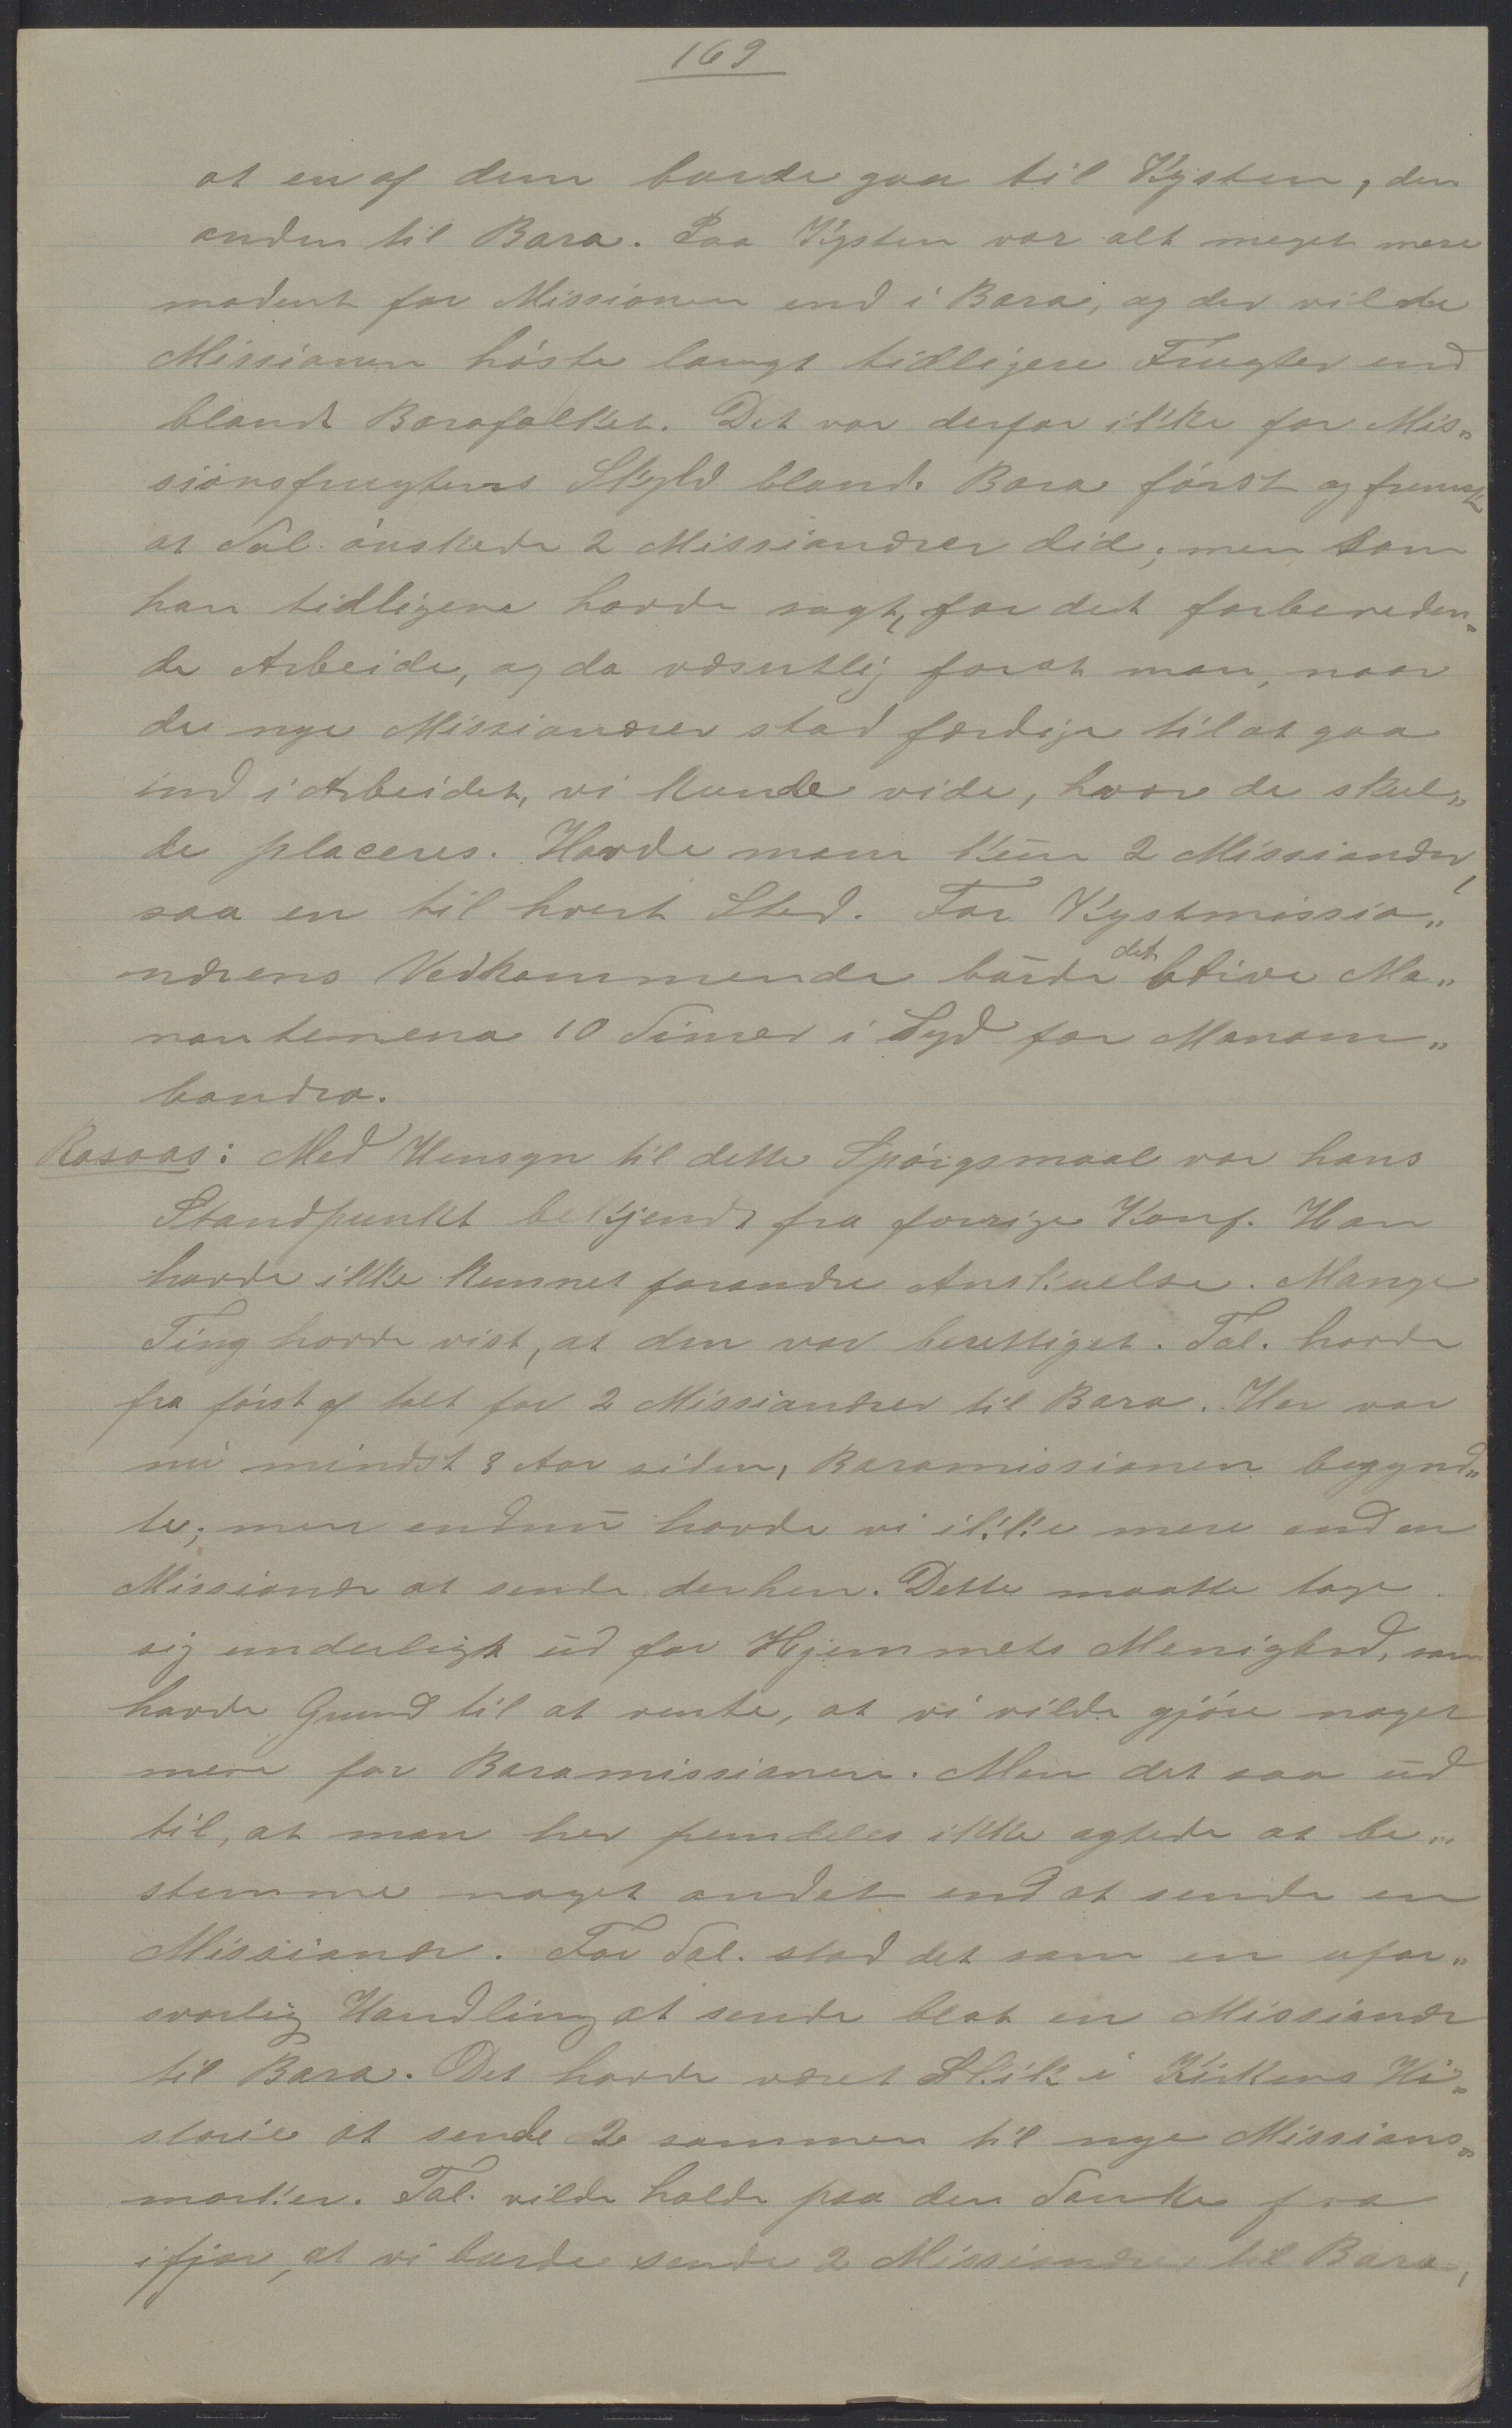 169
at en af dem burde gaa til Kysten, den
anden til Bara. Paa Kysten var alt meget mere
modent for Missionen end i Bara, og der vilde
Missionen höste langt tidligere Frugter end
blandt Barafolket. Det var derfor ikke for Mis„
sionsfrugtens Skyld blandt Bara först og fremst
at Tal. önskede 2 Missionærer did; men som
han tidligere havde sagt, for det forbereden„
de Arbeide, og da væsentlig forat man, naar
de nye Missionærer stod færdige til at gaa
ind i Arbeidet, vi kunde vide, hvor de skul„
de placeres. Havde man kun 2 Missionærer,
saa en til hvert Sted. For Kystmissio„
nærens Vedkommende burde det blive Ma„
nantenena 10 Timer i Syd for Manam„
bondro.
Rosaas: Med Hensyn til dette Spörgsmaal var hans
Standpunkt bekjendt fra forrige Konf. Han
havde ikke kunnet forandre Anskuelse. Mange
Ting havde vist, at den var berettiget. Tal. havde
fra först af talt for 2 Missionærer til Bara. Her var
nu mindst 3 Aar siden, Baramissionen begynd„
te; men endnu havde vi ikke mere end en
Missionær at sende derhen. Dette maatte tage
sig underligt ud for Hjemmets Menighed, som
havde Grund til at vente, at vi vilde gjöre noget
mere for Baramissionen. Men det saa ud
til, at man her fremdeles ikke agtede at be„
stemme noget andet end at sende en
Missionær. For Tal. stod det som en ufor„
svarlig Handling at sende blot en Missionær
til Bara. Det havde været Skik i Kirkens Hi„
storie at sende 2 sammen til nye Missions„
marker. Tal. vilde holde paa den Tanke fra
ifjor, at vi burde sende 2 Missionærer til Bara,